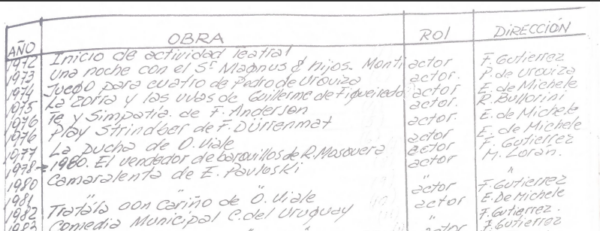 AÑO OBRA ROL DIRECCIÓN
1972 Inicio de actividad teatral
1973 una noche con el Sr Magnus & Hijos. Monti actor F. Gutierrez
1974 Juego para cuatro de Pedro de Urquiza actor. P. de Urquiza
1975 La zorra y las uvas de Guilherme de Figueiredo actor E. de Michele
1976 Te y Simpatia de F. Anderson actor. R. Bullorini
1976 Play Strindber de F. Dürrenmat actor E. de Michele
1977 La Ducha de O. Viale actor E. de Michele
1978-1980. El vendedor de barquillos de R. Mosquera actor F. Gutierrez
1980 Camaralenta de E. Pavloski actor M. Loran.
1981 " "
1982 Tratála con cariño de O. Viale actor F. Gutierrez
1983 Comedia Municipal C. del Uruguay actor E. De Michele
" F. Gutierrez.
actor F. Gutierrez